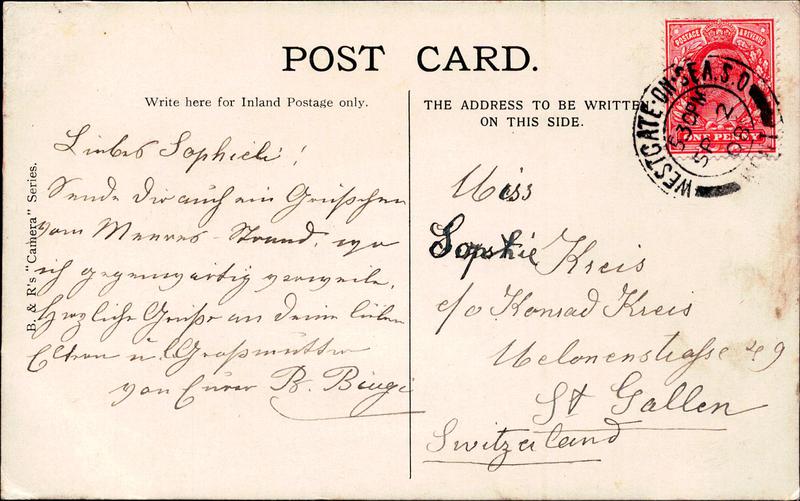 POST CARD.
Write here for Inland Postage only.
THE ADDRESS TO BE WRITTEN
ON THIS SIDE.
B. & R's "Camera" Series.
POSTAGE & REVENUE
ONE PENNY
WESTGATE-ON-SEA.S.O
5 30PM
SP 2
08
Liebes Sophieli!
Sende Dir auch ein Grüsschen
vom Meeres-Strand, wo
ich gegenwärtig verweile.
Herzliche Grüsse an deine lieben
Eltern u. Grossmutter
von Eurer B.
Miss
Sophie Kreis
c/o Konrad Kreis
Melonenstrasse 49
St Gallen
Switzerland